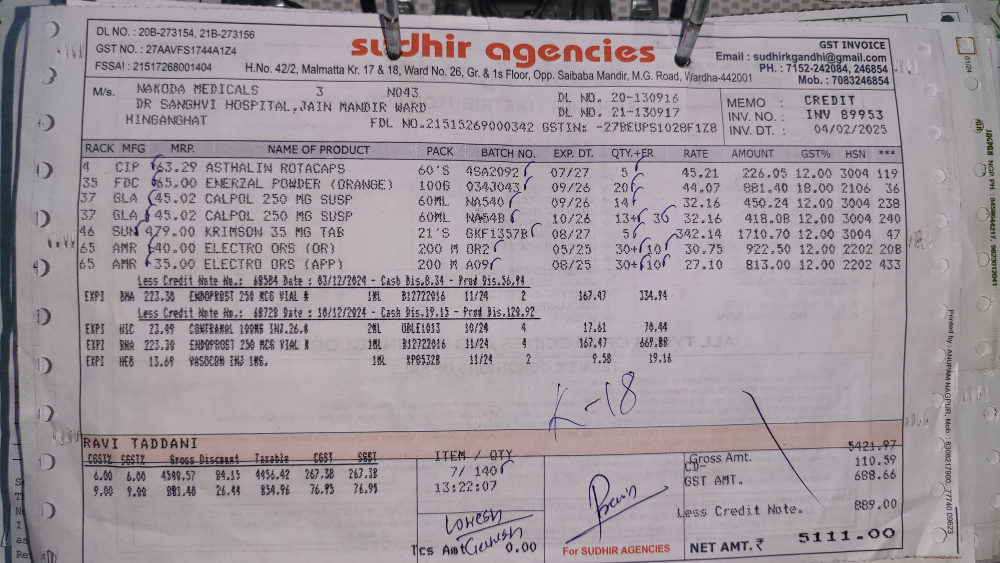 DL NO. : 20B-273154, 21B-273156
GST NO. : 27AAVFS1744A1Z4
FSSAI : 21517268001404
sudhir agencies
H.No. 42/2, Malmatta Kr. 17 & 18, Ward No. 26, Gr. & 1s Floor, Opp. Saibaba Mandir, M.G. Road, Wardha-442001
GST INVOICE
Email : sudhirkgandhi@gmail.com
PH. : 7152-242084, 246854
Mob. : 7083246854
M/s. NAKODA MEDICALS 3 N043
DR SANGHVI HOSPITAL,JAIN MANDIR WARD
HINGANGHAT
DL NO. 20-130916
DL NO. 21-130917
FDL NO.21515269000342 GSTIN: -27BEUPS1028F1Z8
MEMO : CREDIT
INV. NO. : INV 89953
INV. DT. : 04/02/2025
RACK MFG MRP. NAME OF PRODUCT PACK BATCH NO. EXP. DT. QTY.+FR RATE AMOUNT GST% HSN ***
4 CIP 63.29 ASTHALIN ROTACAPS 60'S 4SA2092 07/27 5 45.21 226.05 12.00 3004 119
35 FDC 65.00 ENERZAL POWDER (ORANGE) 100G 034J043 09/26 20 44.07 881.40 18.00 2106 36
37 GLA 45.02 CALPOL 250 MG SUSP 60ML NA540 09/26 14 32.16 450.24 12.00 3004 238
37 GLA 45.02 CALPOL 250 MG SUSP 60ML NA54B 10/26 13+ 32.16 418.08 12.00 3004 240
46 SUN 479.00 KRIMSON 35 MG TAB 21'S GKF1357B 08/27 5 342.14 1710.70 12.00 3004 47
65 AMR 40.00 ELECTRO ORS (OR) 200 M OR2 05/25 30+ 10 30.75 922.50 12.00 2202 208
65 AMR 35.00 ELECTRO ORS (APP) 200 M A09 08/25 30+ 10 27.10 813.00 12.00 2202 433
Less Credit Note No.: 68584 Date : 03/12/2024 - Cash Dis.8.34 - Prod Dis.56.94
EXPI BHA 223.30 ENDOPROST 250 MCG VIAL # 1ML B12722016 11/24 2 167.47 334.94
Less Credit Note No.: 68728 Date : 10/12/2024 - Cash Dis.19.15 - Prod Dis.120.92
EXPI NIC 23.49 CONTRAMOL 100MG INJ.26.# 2ML 10/24 4 17.61 70.44
EXPI BHA 223.30 ENDOPROST 250 MCG VIAL # 1ML B12722016 11/24 4 167.47 669.88
EXPI NEO 13.69 1ML 11/24 2 9.58 19.16
K-18
RAVI TADDANI
CGST% SGST% Gross Discount Taxable CGST SGST
6.00 6.00 4540.57 84.15 4456.42 267.38 267.38
9.00 9.00 881.40 26.44 854.96 76.95 76.95
ITEM / QTY
7/ 140
13:22:07
Tcs Amt 0.00
For SUDHIR AGENCIES
Gross Amt. 5421.97
CD- 110.59
GST AMT. 688.66
Less Credit Note. 889.00
NET AMT. ₹ 5111.00